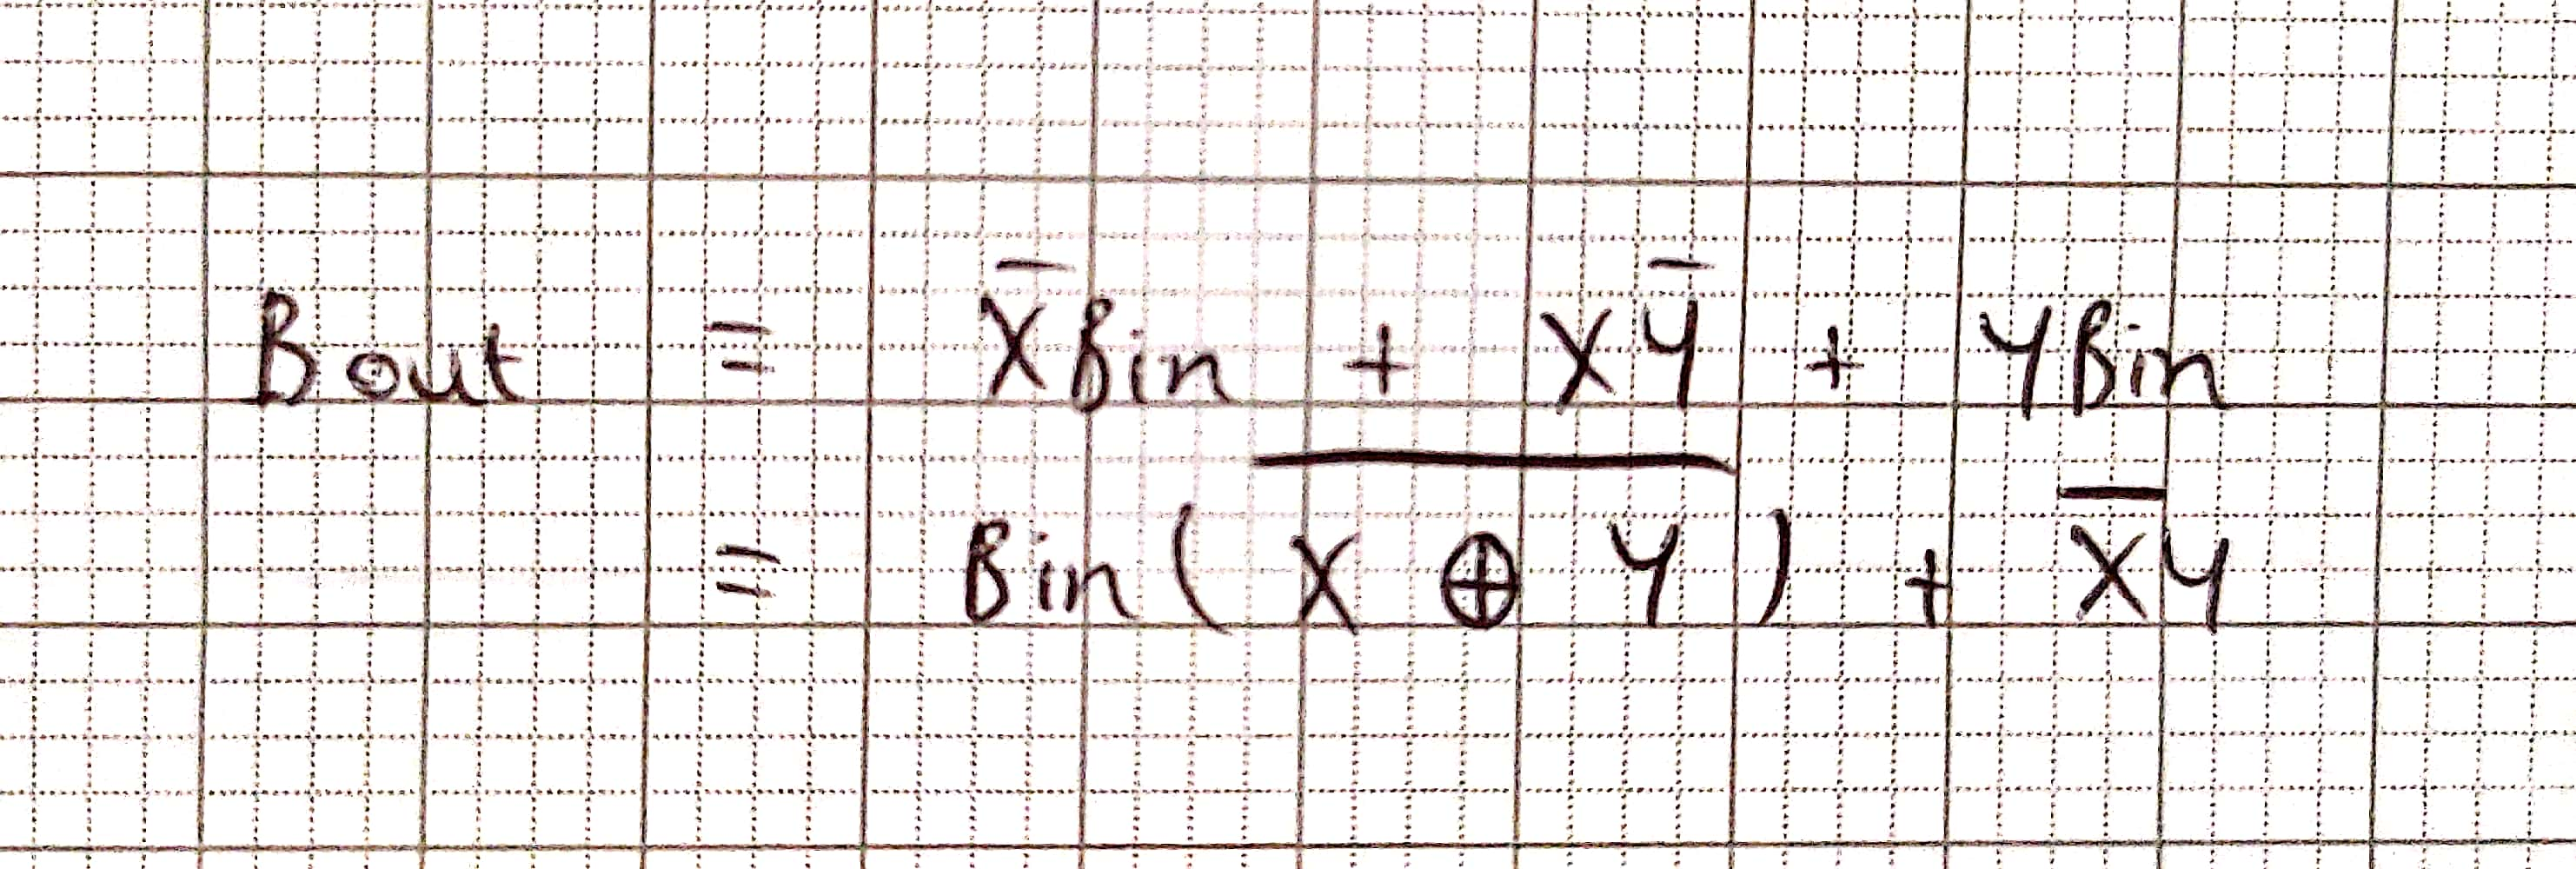 Bout = X̅Bin + XY̅ + YBin
= Bin( X̅ ̅⊕̅ ̅Y̅ ) + X̅Y